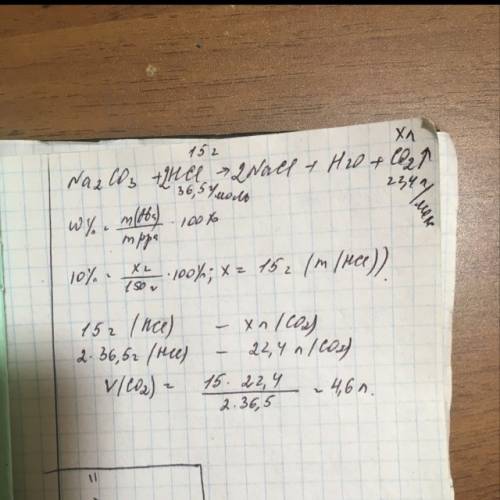 15г хл
Na2CO3 + 2HCl → 2NaCl + H2O + CO2↑
36,5г/моль 22,4 л/моль
W% = m(в-ва)/m р-ра · 100%
10% = xг/150г · 100%; x = 15г (m(HCl)).
15г (HCl) – xл(CO2)
2·36,5г (HCl) – 22,4 л(CO2)
V(CO2) = 15·22,4/2·36,5 = 4,6 л.